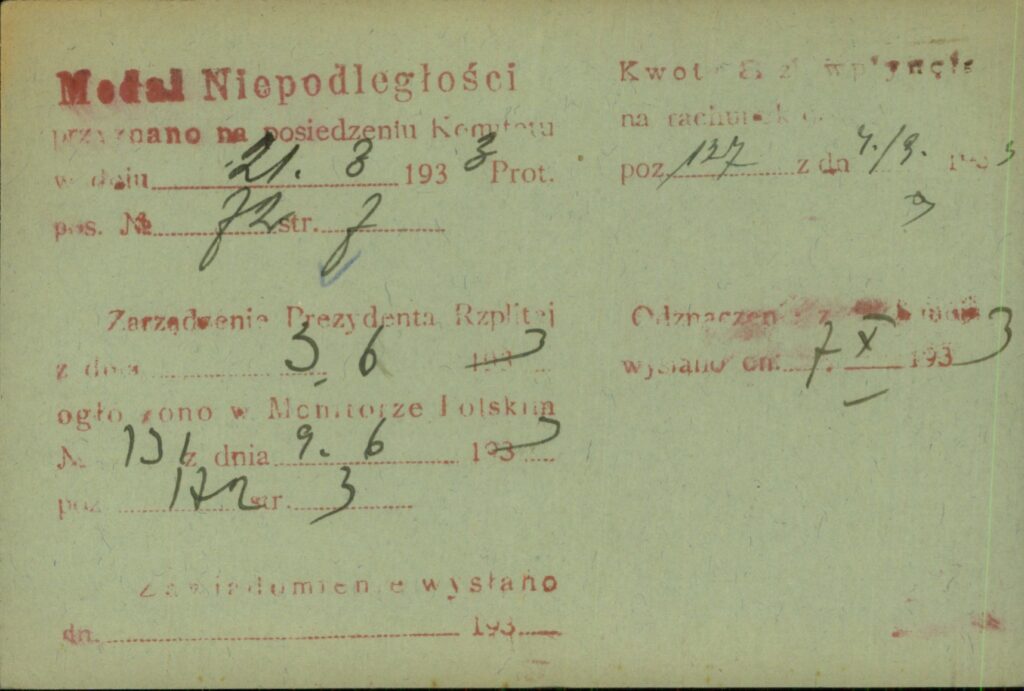 Medal Niepodległości
przyznano na posiedzeniu Komitetu
w dniu 21. 3 1933 Prot.
pos. № 72 str. 7
Zarządzenie Prezydenta Rzplitej
z dnia 3. 6 1933
ogłoszono w Monitorze Polskim
№ 131 z dnia 9. 6 1933
poz. 172 str. 3
Zawiadomienie wysłano
dn. 193
Kwota zł wpłynęła
na rachunek
poz. 137 z dn
Odznaczenie z
wysłano dn. 7 X 1933